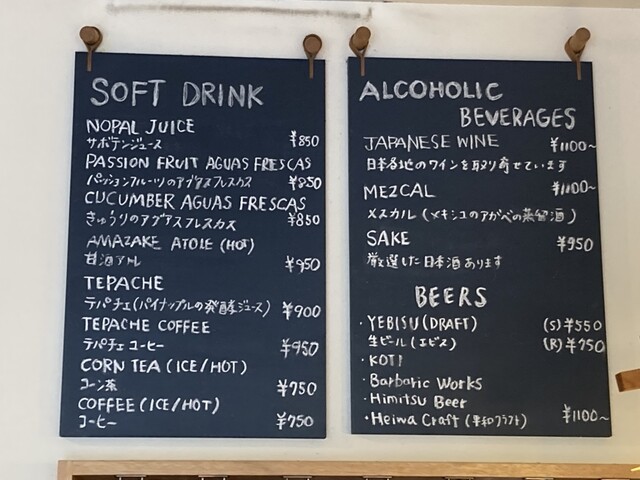 SOFT DRINK
NOPAL JUICE
サボテンジュース ¥850
PASSION FRUIT AGUAS FRESCAS
パッションフルーツのアグアスフレスカス ¥850
CUCUMBER AGUAS FRESCAS
きゅうりのアグアスフレスカス ¥850
AMAZAKE ATOLE (HOT)
甘酒アトレ ¥950
TEPACHE
テパチェ(パイナップルの発酵ジュース) ¥900
TEPACHE COFFEE
テパチェコーヒー ¥950
CORN TEA (ICE/HOT)
コーン茶 ¥750
COFFEE (ICE/HOT)
コーヒー ¥750
ALCOHOLIC
BEVERAGES
JAPANESE WINE ¥1100~
日本各地のワインを取り寄せています
MEZCAL ¥1100~
メスカル (メキシコのアガベの蒸留酒)
SAKE ¥950
厳選した日本酒あります
BEERS
・YEBISU (DRAFT) (S) ¥550
生ビール (エビス) (R) ¥750
・KOTI
・Barbaric Works
・Himitsu Beer
・Heiwa Craft (平和クラフト) ¥1100~